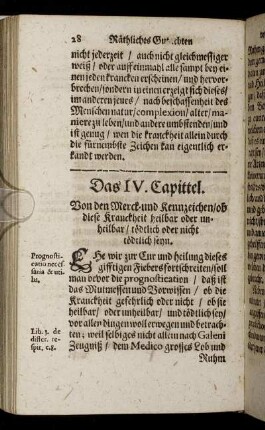 28 Räthliches Gutachten
nicht jederzeit / auch nicht gleichmessiger
weiß / oder auff einmahl alle sampt bey ei-
nen jeden krancken erscheinen / und hervor-
brechen / sondern in einem erzeigt sich dieses /
im anderen jenes / nach beschaffenheit des
Menschen natur / complexion / alter / ma-
niere zu leben / und andere umbständen / und
ist genug / wen die kranckheit allein durch
die fürnembste Zeichen kan eigentlich er-
kandt werden.
Das IV. Capittel.
Von den Merck- und Kennzeichen / ob
diese Kranckheit heilbar oder un-
heilbar / tödtlich oder nicht
tödtlich seyn.
EHe wir zur Cur und heilung dieses
gifftigen Fiebers fortschreiten / soll
man bevor die prognostication / daß ist
das Mutmessen und Vorwissen / ob die
Kranckheit gefehrlich oder nicht / ob sie
heilbar / oder unheilbar / und tödtlich sey /
vor allen dingen woll erwegen und betrach-
ten: weil selbiges nicht allein nach Galeni
Zeugniß / dem Medico grosses Lob und
Ruhm
Prognosti-
catio necessaria & uti-
lis.
Lib. 3. de
differ. re-
spir. c. 8.